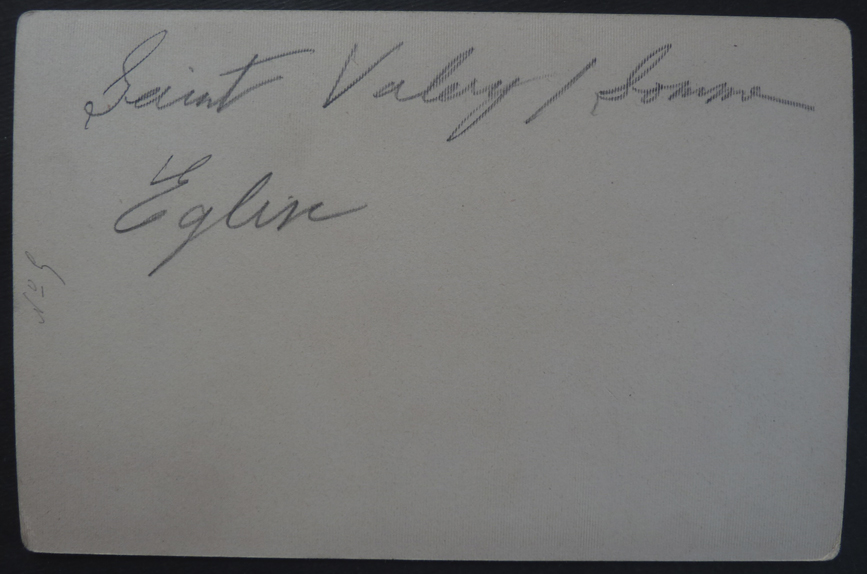 Saint Valery / Somme
Eglise